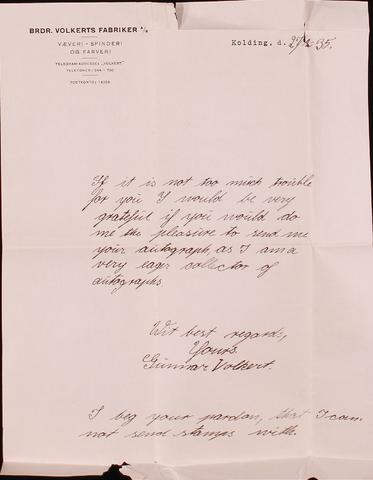 BRDR. VOLKERTS FABRIKER A/S
VÆVERI - SPINDERI
OG FARVERI
TELEGRAM-ADRESSE: „VOLKERT"
TELEFONER: 544 - 730
POSTKONTO: 14006
Kolding, d. 27/2 35.
If it is not too much trouble
for you I would be very
grateful if you would do
me the pleasure to send me
your autograph, as I am a
very eager collector of
autographs.
Wit best regards,
Yours.
Gunnar Volkert.
I beg your pardon, that I can
not send stamps with.